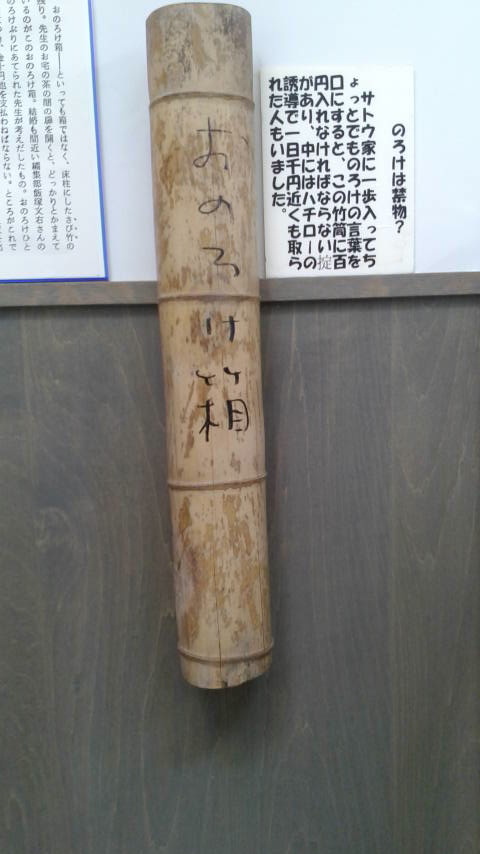 のろけは禁物?
サトウ家に一歩入ってち
ょっとでものろけの言葉を
口にすると、この竹筒に百
円入れなければならない掟
があり、中にはハチローの
誘導で一日千円近くも取ら
れた人もいました。
おのろけ箱
おのろけ箱――といっても箱ではなく、床柱にしたさび竹の
残り。先生のお宅の茶の間の扉を開くと、どっかりとかまえて
いるのがこのおのろけ箱。結婚も間近い編集部飯塚文右さんの
のろけぶりにあてられた先生が考えだしたもの。おのろけひと
円也を支払わねばならない。ところがこれで